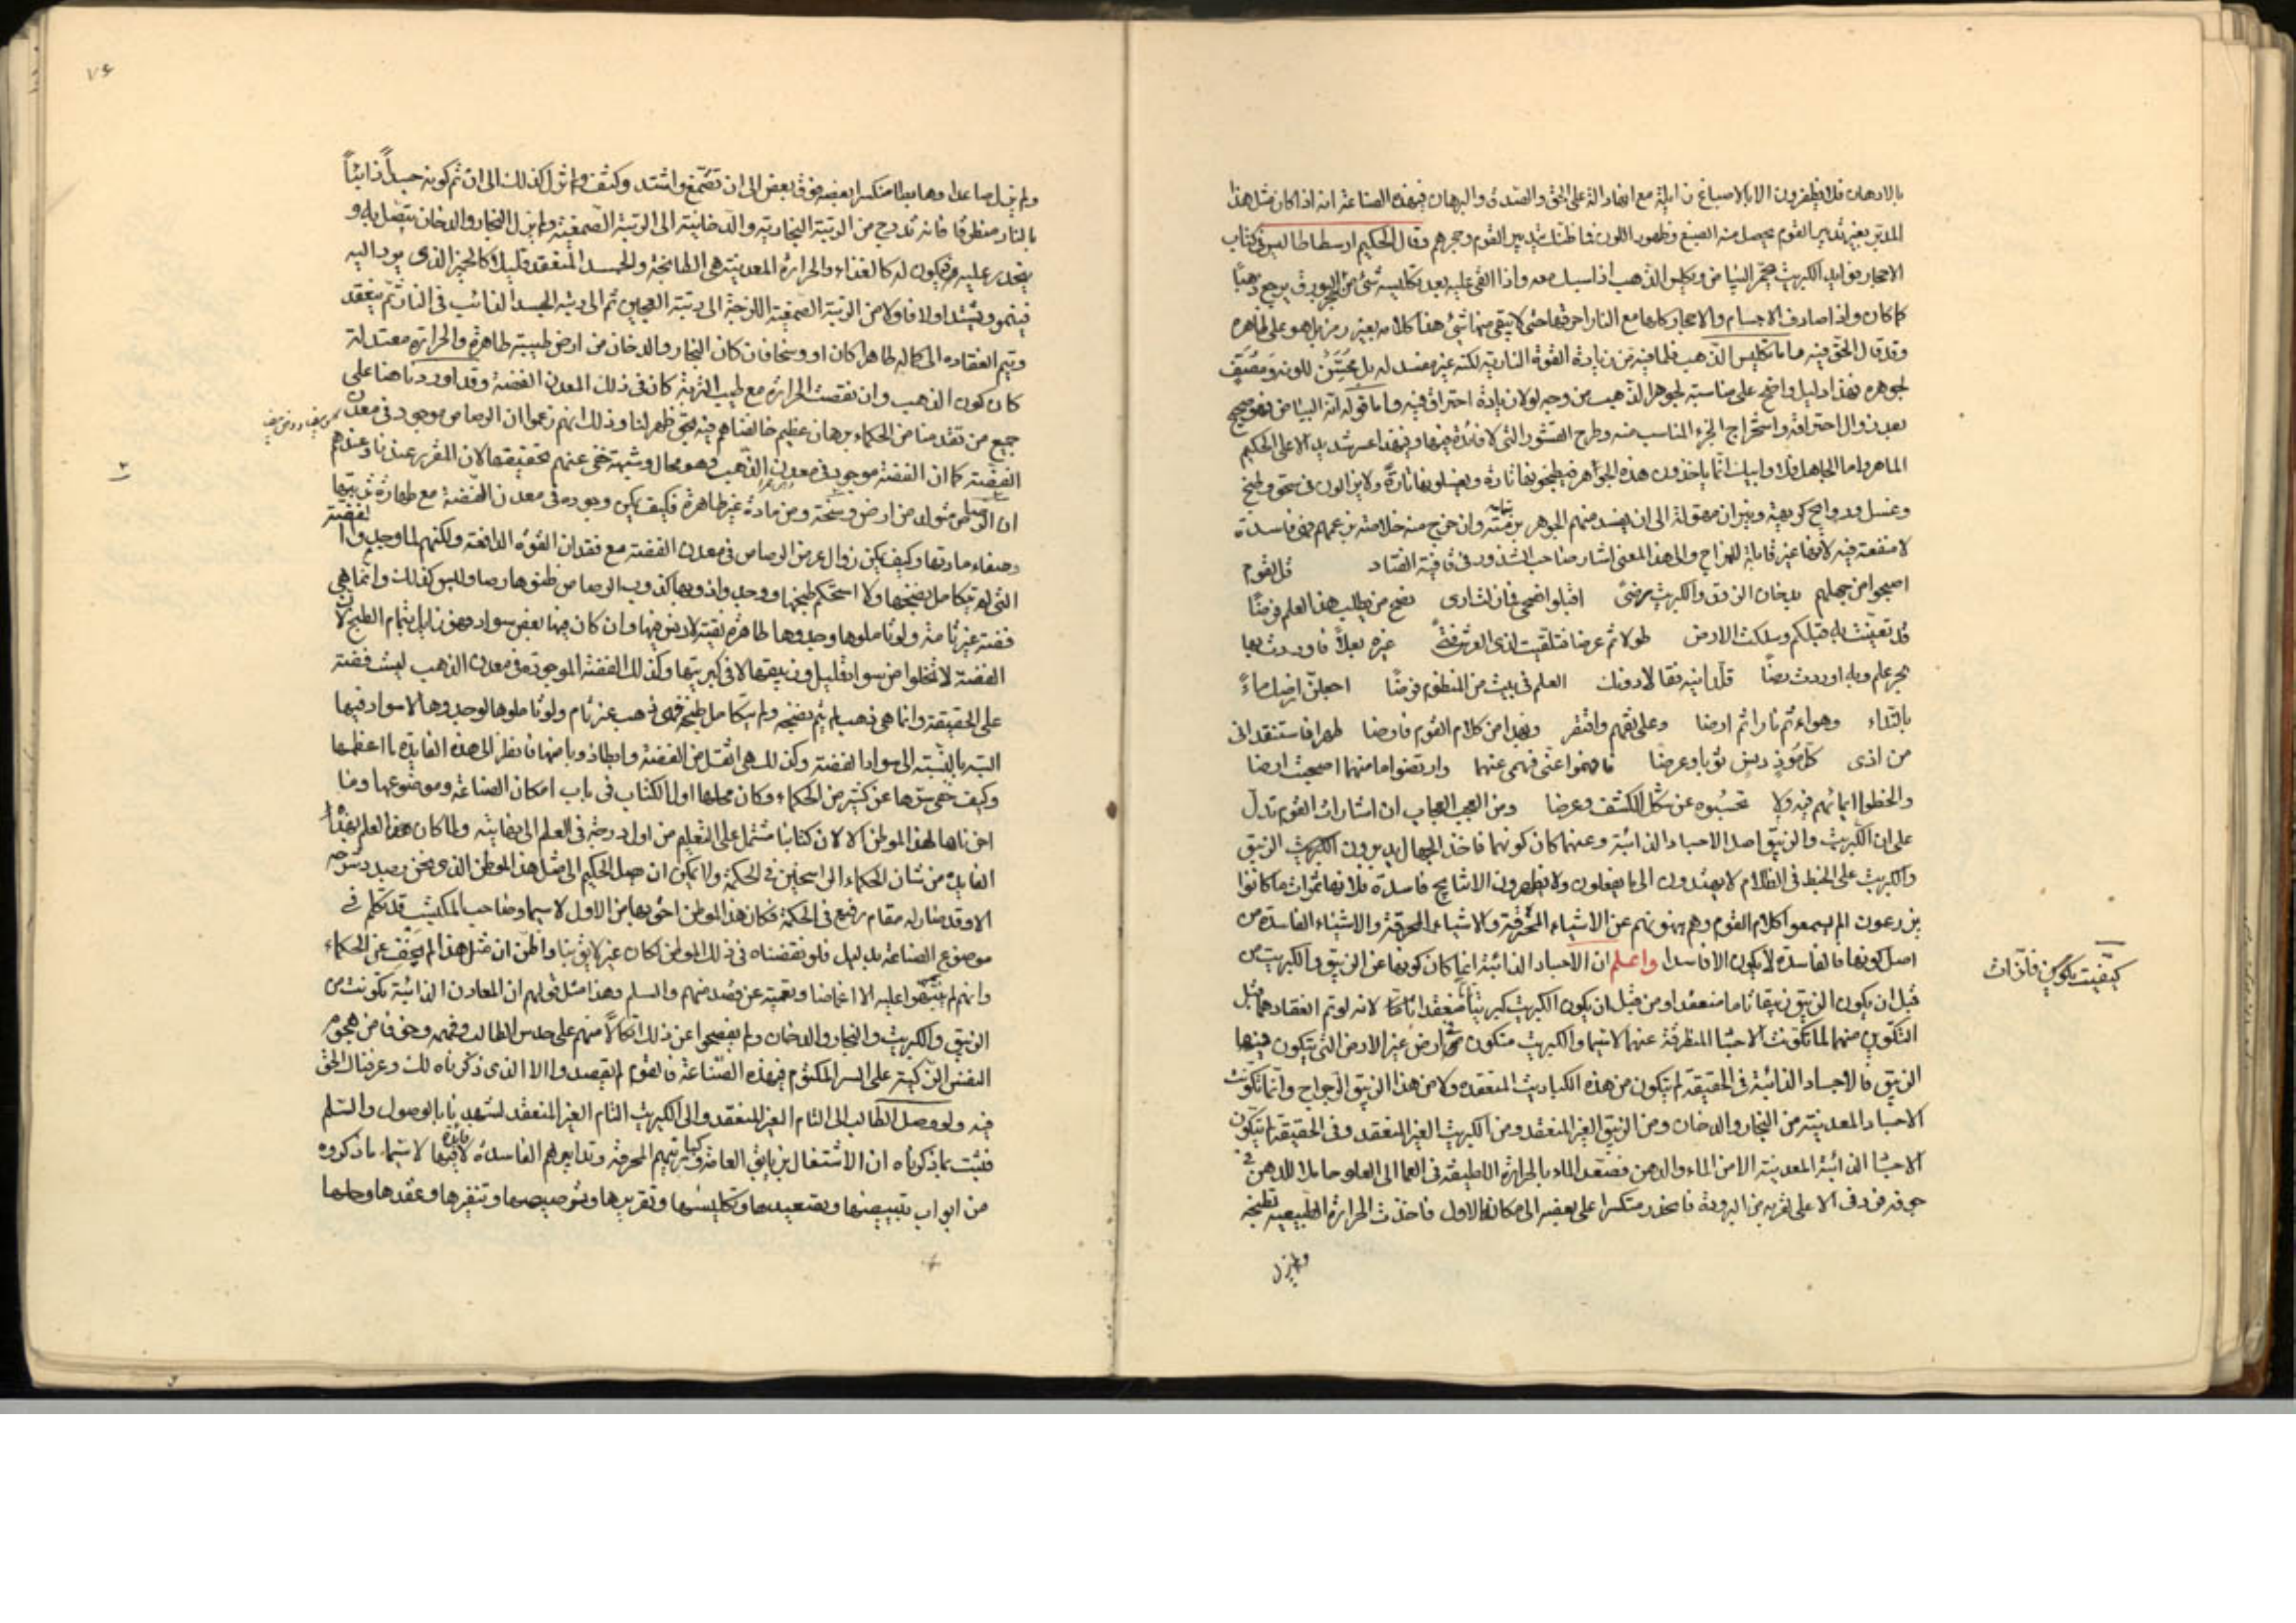 بالادهان فلا يظفرون الا بالاصباغ زايلة مع انها دالة على الحق والصدق والبرهان فهذه الصناعة انه اذا كان مثل هذا
المدبر بغير تدبير القوم يحصل منه الصبغ وظهور اللون فما ظنك بتدبير القوم وحجرهم وقال الحكيم ارسطاطاليس في كتاب
الاحجار يقابله الكبريت حجر البياض ويكلس الذهب اذا سبك معه واذا القى عليه بعد تكليسه شئ من البورق يرجع ذهبا
كما كان واذا صادف الاجسام والاحجار كلها مع النار احرقها حتى لا يبقى منها شئ هذا كلامه بغير رمز بل هو على ظاهره
وقد قال الحق فيه ما ما تكليس الذهب فلما فيه من زيادة القوة النارية لكنه غير مفسد له بل محسن للونه ومصف
لجوهره فهذا دليل واضح على مناسبته لجوهر الذهب من وجه لولا زيادة احتراق فيه واما قوله انه البياض فهو صحيح
بعد زوال احتراقه واستخراج الجزء المناسب منه وطرح القشور التى لا فائدة فيها وهذا عسر شديد الا على الحكيم
الماهر واما الجاهل فلا وابيك انما ياخذون هذه الجواهر فيطبخونها تارة ويغسلونها تارة ولا يزالون فى سحق وطبخ
وغسل وروايح كريهة ونيران مهولة الى ان يفسد منهم الجوهر برمته وان خرج منه خلاصته بزعمهم فهى فاسدة
لا منفعة فيه لانها غير قابلة للمزاج والى هذا المعنى اشار صاحب الشذور فى قافية الضاد قل لقوم
اصبحوا من جهلهم بدخان الزوق والكبريت مرضى اقبلوا نصحى فان لشارى نصح من يطلب هذا العلم فرضا
قد تعبت به قبلكم وسلكت الارض طولا ثم عرضا فتلقيت لذى العرش فتى غزه بعلا فاوردت بها
بحر علم وبه اوردت بضا قلد انيه فقالا دونك العلم فى بيت من المنظوم فرضا اجعلن ارضك ماءً
بالنداء وهواء ثم نارا ثم ارضا وعلى الفهم وافتقر وبعدا من كلام القوم فاوضا
من اذى كل مُوذٍ دينس ثوبا وعرضا فافهموا عنى فهمى عنهما وارتضوا ما منهما اصبحت ارضا
ومن العجب العجاب ان اشارات القوم تدل
على ان الكبريت والزيبق اصل الاجساد الذائبة وعنهما كان كونهما فاخذ الجهال يدبرون الكبريت الزيبق
والكبريت على الخبط فى الظلام لا يهتدون الى ما يفعلون ولا يظهرون الا نتايج فاسدة بلا نهاء ثمرات ما كانوا
يزرعون الم يسمعوا كلام القوم وهم ينهونهم عن الاشياء المحرقة والاشياء المحرقة والاشياء الفاسدة من
اصل كونها فالفاسدة لا يكون الا فاسدا واعلم ان الاجساد الذائبة انما كان كونها عن الزيبق والكبريت من
قبل ان يكون الزيبق زيبقا تاما منعقدا ومن قبل ان يكون الكبريت كبريتا منعقدا تاما لانه لو تم انعقادهما قبل
التكوين منهما لما تكونت الاجساد المنطرقة عنهما لا سيما والكبريت متكون فى ارض غير الارض التى يتكون فيها
الزيبق فالاجساد الذائبة فى الحقيقة لم يتكون من هذه الكباريت المنعقده ولا من هذا الزيبق الرجراج وانما تكونت
الاجساد المعدنية من البخار والدخان ومن الزيبق الغير المنعقد ومن الكبريت الغير المنعقد وفى الحقيقة لم يتكون
الاجساد الذائبة المعدنية الا من الماء والدهن فصعد الماء بالحرارة اللطيفة فى العما الى العلو حاملا للدهن فى
جوفه فبرد فى الاعلى لقربه من البرودة فانحدر منكسرا على بعضه الى مكانه الاول فاخذت الحرارة الطبيعية تطبخه
ولم يزل
كيفيت تكوين فلزات
٧٤
ولم يزل صاعدا وهابطا منكسرا بعضه فوق بعض الى ان تصمغ واشتد وكثف ولم يزل كذلك الى ان تم كونه جسداً ذائباً
بالنار منطرقا فانه تدرج من الرتبة البخارية والدخانية الى الرتبة الصمغية ولم يزل البخار والدخان يتصل به و
ينحدر عليه فيكون له كالغذاء والحرارة المعدنية هى الطابخة والجسد المنعقد قليلا كالخبز الذى يرد اليه
فينمو ويشتد اولا فاولا من الرتبة الصمغية اللزجة الى رتبة العجين ثم الى رتبة الجسد الذائب فى النار ثم ينعقد
ويتم انعقاده الى كماله طاهرا كان او وسخا فان كان البخار والدخان من ارض طيبة طاهرة والحرارة معتدلة
كان كون الذهب وان نقصت الحرارة مع طيب التربة كان فى ذلك المعدن الفضة وقد اوردنا هنا على
جميع من تقدمنا من الحكماء برهان عظيم خالفناهم فيه حتى ظهر لنا وذلك انهم زعموا ان الرصاص موجود فى معدن
الفضة كما ان الفضة موجود فى معدن الذهب وهو محال وشبهة خفى عنهم تحقيقها لان المقرر عندنا وعندهم
ان الرصاص متولد من ارض وسخة ومن مادة غير طاهرة فكيف يمكن وجوده فى معدن الفضة مع طهارة تربتها
وصفاء مادتها وكيف يمكن زوال عرض الرصاص فى معدن الفضة مع فقدان القوة الدافعة ولكنهم لما وجدوا الفضة
التى لم يتكامل نضجها ولا استحكم طبخها ووجدوا ذوبها كذوب الرصاص ظنوها رصاصا وليس كذلك وانما هى
فضة غير تامة ولو تاملوها وجدوها طاهرة نقية لا دنس فيها وان كان فيها بعض سواد فهو زايل بتمام الطبخ لان
الفضة لا تخلوا من سواد قليل فى زيبقها لا فى كبريتها وكذلك الفضة الموجودة فى معدن الذهب ليست فضة
على الحقيقة وانما هى ذهب لم يتم نضجه ولم يتكامل طبخه فهى ذهب غير تام ولو تاملوها لوجدوها لا سواد فيها
البتة بالنسبة الى سواد الفضة وكذلك هى اثقل من الفضة وابطاء ذوبا منها فانظر الى هذه الفايدة ما اعظمها
وكيف خفى سرها عن كثير من الحكماء وكان محلها اول الكتاب فى باب امكان الصناعة وموضوعها وما
اخرناها لهذا الموطن الا لان كتابنا مشتمل على التعليم من اول درجة فى العلم الى نهايته ولما كان هذا العلم بهذه
الفايدة من شان الحكماء الراسخين فى الحكمة ولا يمكن ان يصل الحكيم الى مثل هذا الموطن الذى نحن بصدد شرحه
الا وقد صار له مقام رفيع فى الحكمة فكان هذا الموطن احق بها من الاول لا سيما وصاحب المكتسب قد تكلم فى
موضوع الصناعة بدليل فلو نقضناه فى ذلك الموطن لكان غير لايق بنا واظن ان مثل هذا لم يخف عن الحكماء
وانهم لم ينبهوا عليه الا اغماضا وتعمية عن قصد منهم والسلم وهذا مثل قولهم ان المعادن الذائبة تكونت من
الزيبق والكبريت والبخار والدخان ولم يفصحوا عن ذلك اتكالا منهم على حدس الطالب وفهمه وخوفا من هجوم
النفس الغير كيسة على السر المكتوم فى هذه الصناعة فالقوم لم يقصدوا الا الذى ذكرناه لك وعرفناك الحق
فيه ولو وصل الطالب الى التام الغير المنعقد والى الكبريت التام الغير المنعقد لشهدنا بالوصول والسلم
فثبت بما ذكرناه ان الاشتغال بزيابق العامة وكباريتهم المحرقة وتدابيرهم الفاسدة لا فايدة فيها لا سيما ما ذكروه
من ابواب تبييضها وتصعيدها وتكليسها وتقريرها وترصيصها وتنقيرها وعقدها وحلها